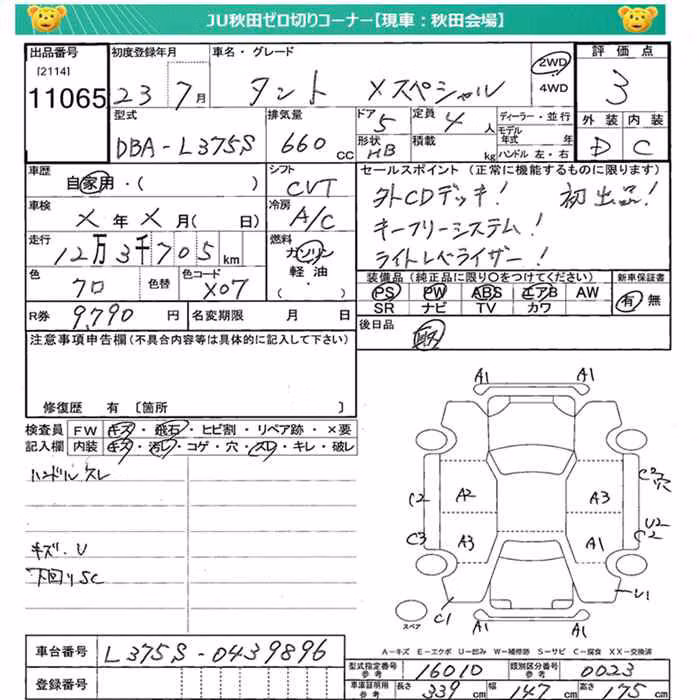 JU秋田ゼロ切りコーナー【現車：秋田会場】
出品番号 初度登録年月 車名・グレード 評価点
[2114]
11065 23 7月 タント Xスペシャル 2WD 4WD 3
型式 排気量 ドア 定員 ディーラー・並行 外装 内装
DBA-L375S 660cc 5 4人 モデル年式 年 D C
形状 積載 ハンドル 左・右
HB kg
車歴 シフト セールスポイント（正常に機能するものに限ります）
自家用・( ) CVT 外CDデッキ! 初出品!
車検 冷房 キーフリーシステム!
X年X月( 日) A/C ライトレベライザー!
走行 燃料
12万3千705km ガソリン 軽油・( )
色 色替 色コード 装備品（純正品に限り○をつけてください） 新車保証書
クロ X07 PS PW ABS エアB AW 有 無
SR ナビ TV カワ
R券 9,790円 名変期限 月 日 後日品
注意事項申告欄（不具合内容等は具体的に記入して下さい）
修復歴 有 〔箇所 〕
検査員 FW キズ・飛石・ヒビ割・リペア跡・×要
記入欄 内装 キズ・汚レ・コゲ・穴・スレ・キレ・破レ
ハンドルスレ
キズ・U
下回りSC
A1 A1
C2 A2 A3 C2 穴
C3 A3 A1 U2 C2
C1 U1
A1 A1
スペア
A－キズ E－エクボ U－凹み W－補修跡 S－サビ C－腐食 XX－交換済
車台番号 L375S-0439896
登録番号
型式指定番号 参考 16010 類別区分番号 参考 0023
車庫証明用 参考 長さ 339cm 幅 147cm 高さ 175cm